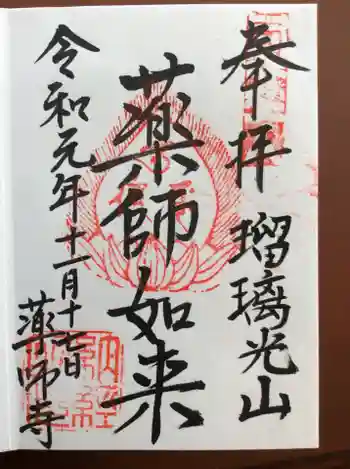 奉拝 瑠璃光山
薬師如来
令和元年十一月十七日
薬師寺